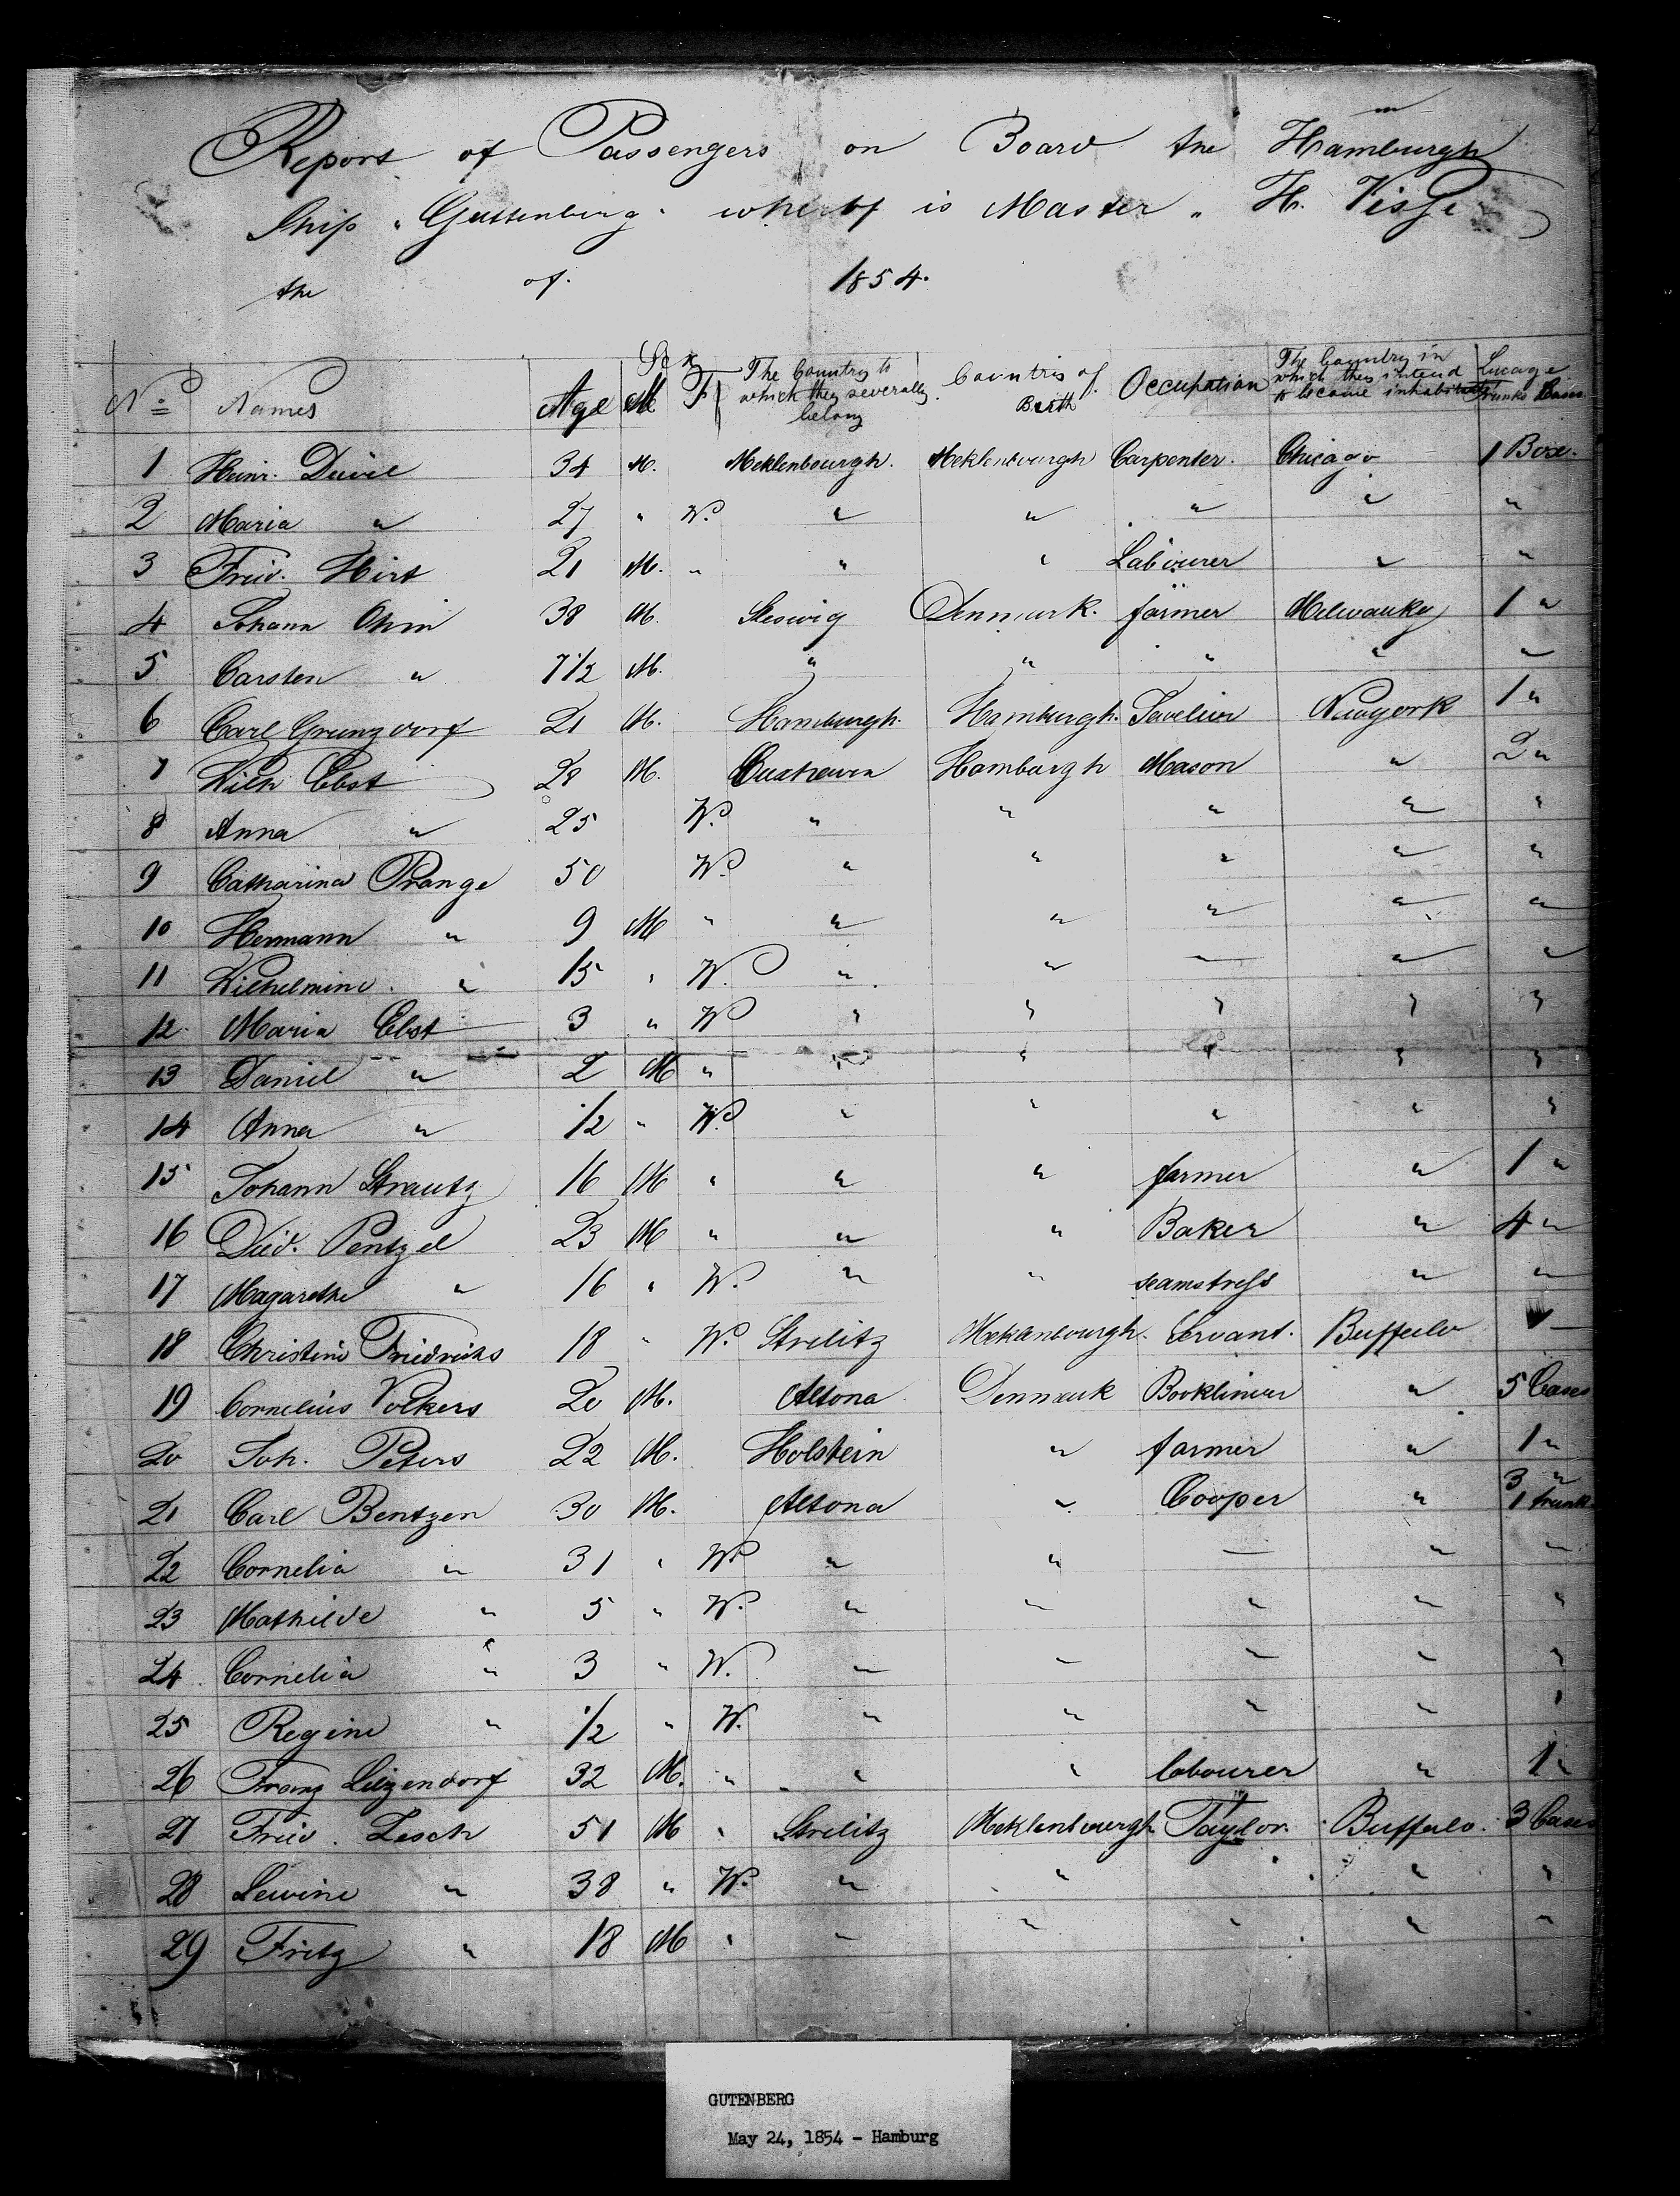 Report of Passengers on Board the Hamburgh
Ship "Guttenberg" wherof is Master " H. Visse
the of. 1854.
Sex
No Names Age M F The Country to which they severally belong Countris of Birth Occupation The Country in which they intend to become inhabitants Lucage Trunks Cases
1 Heinr. 34 M. Meklenbourgh. Meklenbourgh Carpenter. Chicago 1 Box.
2 Maria " 27 " W. " " " " "
3 Fried. Hirt 21 M. " " " Labourer " "
4 Johann Ohm 38 M. Sleswig Denmark. farmer Milwauky 1 "
5 Carsten " 7 1/2 M. " " " " "
6 Carl Grunzdorf 21 M. Hamburgh. Hamburgh. Juvelier Newyork 1 "
7 Wilh Ebst 28 M. Cuxhaven Hamburgh Mason " 2 "
8 Anna " 25 W. " " " " "
9 Catharina Prange 50 W. " " " " "
10 Hermann " 9 M " " " " " "
11 Wilhelmine " 15 " W. " " — " "
12 Maria Ebst 3 " W " " " " "
13 Daniel " 2 M " " " " " "
14 Anna " 1/2 " W. " " " " "
15 Johann Strautz 16 M " " " farmer " 1 "
16 Died. Pentzel 23 M " " " Baker " 4 "
17 Magarethe " 16 " W. " " seamstress " "
18 Christine Friedrichs 18 " W. Strelitz Meklenbourgh. Servant. Buffalo
19 Cornelius Volkers 20 M. Altona Denmark " 5 Cases
20 Joh. Peters 22 M. Holstein " farmer " 1 "
21 Carl Bentzen 30 M. Altona " Cooper " 3 " 1 trunk
22 Cornelia " 31 " W. " " — " "
23 Mathilde " 5 " W. " " " " "
24 Cornelia " 3 " W. " " " " "
25 Regine " 1/2 " W. " " " " "
26 Franz 32 M. " " " labourer " 1 "
27 Fried. Lesch 51 M " Strelitz Meklenbourgh Taylor Buffalo. 3 Cases
28 Lewine " 38 " W. " " " " "
29 Fritz " 18 M " " " " " "
GUTENBERG
May 24, 1854 - Hamburg